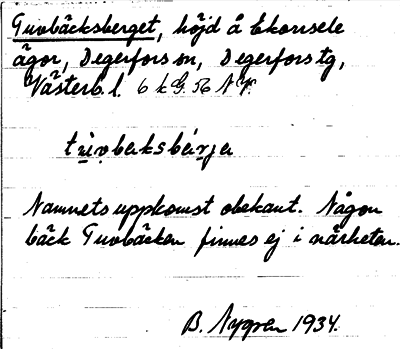 Tuvbäcksberget, höjd å Ekorrsele
ägor, Degerfors sn, Degerfors tg,
Västerb. l. 6 k G. 56 N.Y.
tu̇vbaksbärja
Namnets uppkomst obekant. Någon
bäck Tuvbäcken finnes ej i närheten.
B. Nygren 1934.